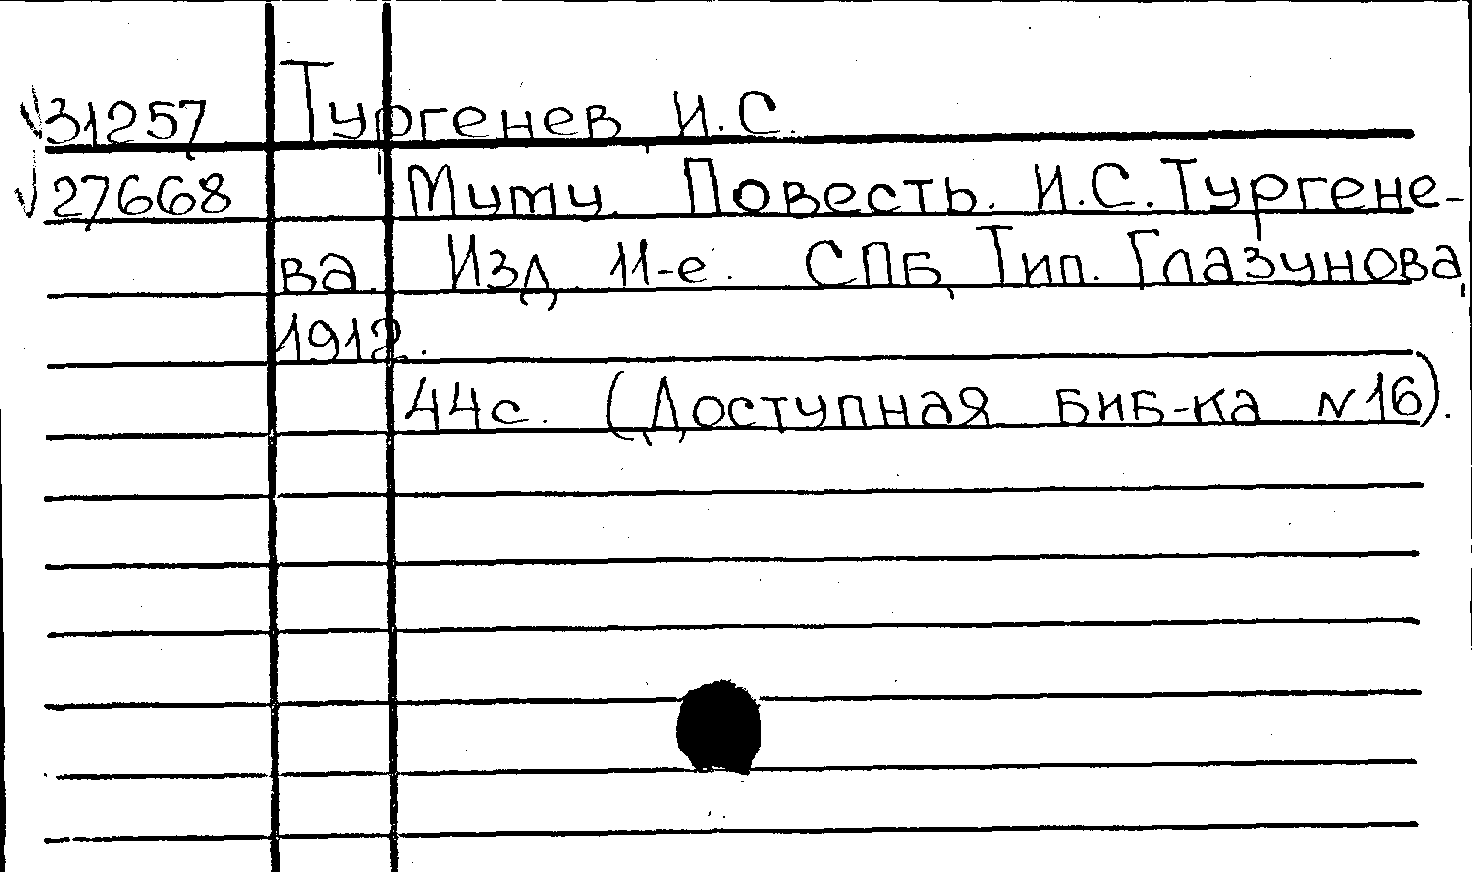 √31257 Тургенев И.С.
√27668 Муму. Повесть. И.С.Тургене-
ва. Изд. 11-е. СПБ, Тип. Глазунова,
1912.
44с. (Доступная биб-ка N16).